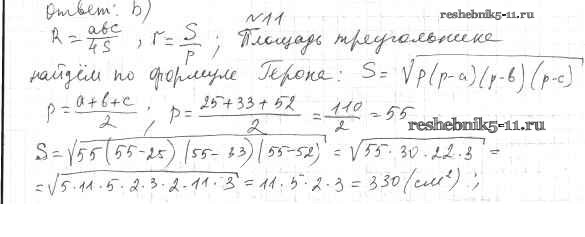 Ответ: b)
№11
reshebnik5-11.ru
R = abc/4S , r = S/p ; Площадь треугольника
найдём по формуле Герона: S = √p(p-a)(p-b)(p-c)
p = a+b+c/2 ; p = 25+33+52/2 = 110/2 = 55
reshebnik5-11.ru
S = √55(55-25)(55-33)(55-52) = √55·30·22·3 =
= √5·11·5·2·3·2·11·3 = 11·5·2·3 = 330 (см²) ;